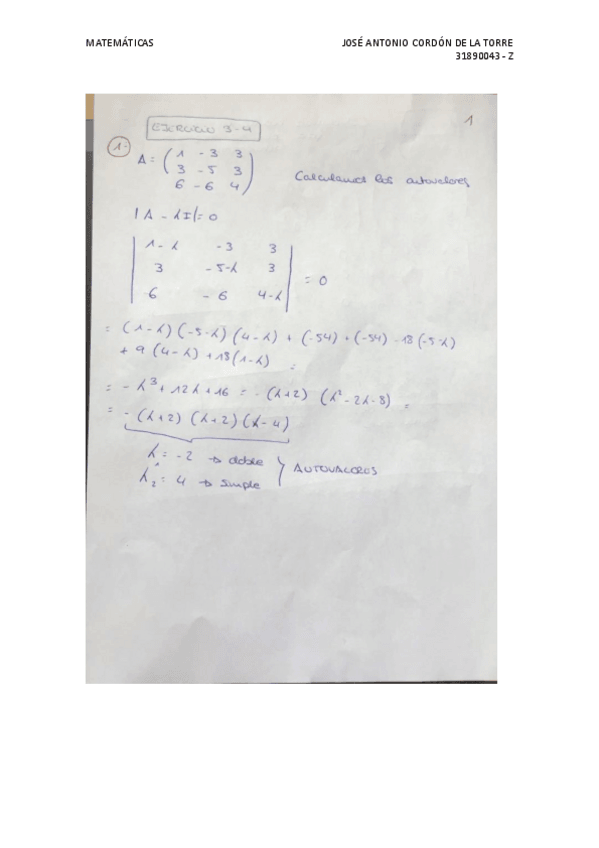 MATEMÁTICAS JOSÉ ANTONIO CORDÓN DE LA TORRE
31890043 - Z
EJERCICIO 3-4
1
1.- A = ( 1 -3 3
3 -5 3
6 -6 4 )
Calculamos los autovalores
|A - λI| = 0
| 1-λ -3 3
3 -5-λ 3
6 -6 4-λ | = 0
= (1-λ) (-5-λ) (4-λ) + (-54) + (-54) - 18(-5-λ)
+ 9 (4-λ) + 18(1-λ) =
= -λ³ + 12λ + 16 = -(λ+2) (λ² - 2λ - 8) =
= -(λ+2) (λ+2) (λ-4)
λ₁ = -2 → doble
λ₂ = 4 → simple
} AUTOVALORES